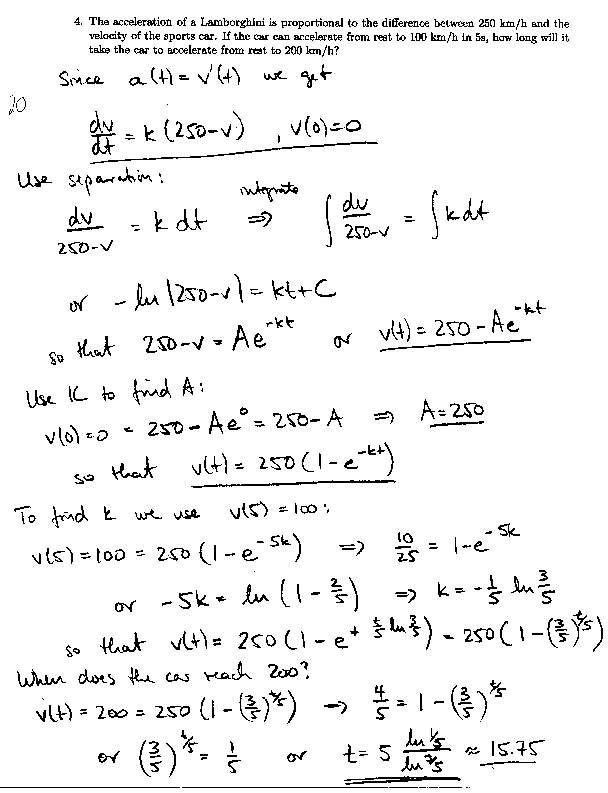 4. The acceleration of a Lamborghini is proportional to the difference between 250 km/h and the
velocity of the sports car. If the car can accelerate from rest to 100 km/h in 5s, how long will it
take the car to accelerate from rest to 200 km/h?
Since a(t) = v'(t) we get
20
dv/dt = k (250-v) , v(0)=0
Use separation:
dv/(250-v) = k dt integrate ⇒ ∫ dv/(250-v) = ∫ k dt
or - ln |250-v| = kt+C
so that 250-v = Ae^(-kt) or v(t) = 250 - Ae^(-kt)
Use IC to find A:
v(0) = 0 = 250 - Ae^0 = 250 - A ⇒ A = 250
so that v(t) = 250 (1 - e^(-kt))
To find k we use v(5) = 100:
v(5) = 100 = 250 (1 - e^(-5k)) ⇒ 10/25 = 1 - e^(-5k)
or -5k = ln (1 - 2/5) ⇒ k = - 1/5 ln 3/5
so that v(t) = 250 (1 - e^(+ t/5 ln 3/5)) = 250 (1 - (3/5)^(t/5))
When does the car reach 200?
v(t) = 200 = 250 (1 - (3/5)^(t/5)) ⇒ 4/5 = 1 - (3/5)^(t/5)
or (3/5)^(t/5) = 1/5 or t = 5 (ln 1/5)/(ln 3/5) ≈ 15.75